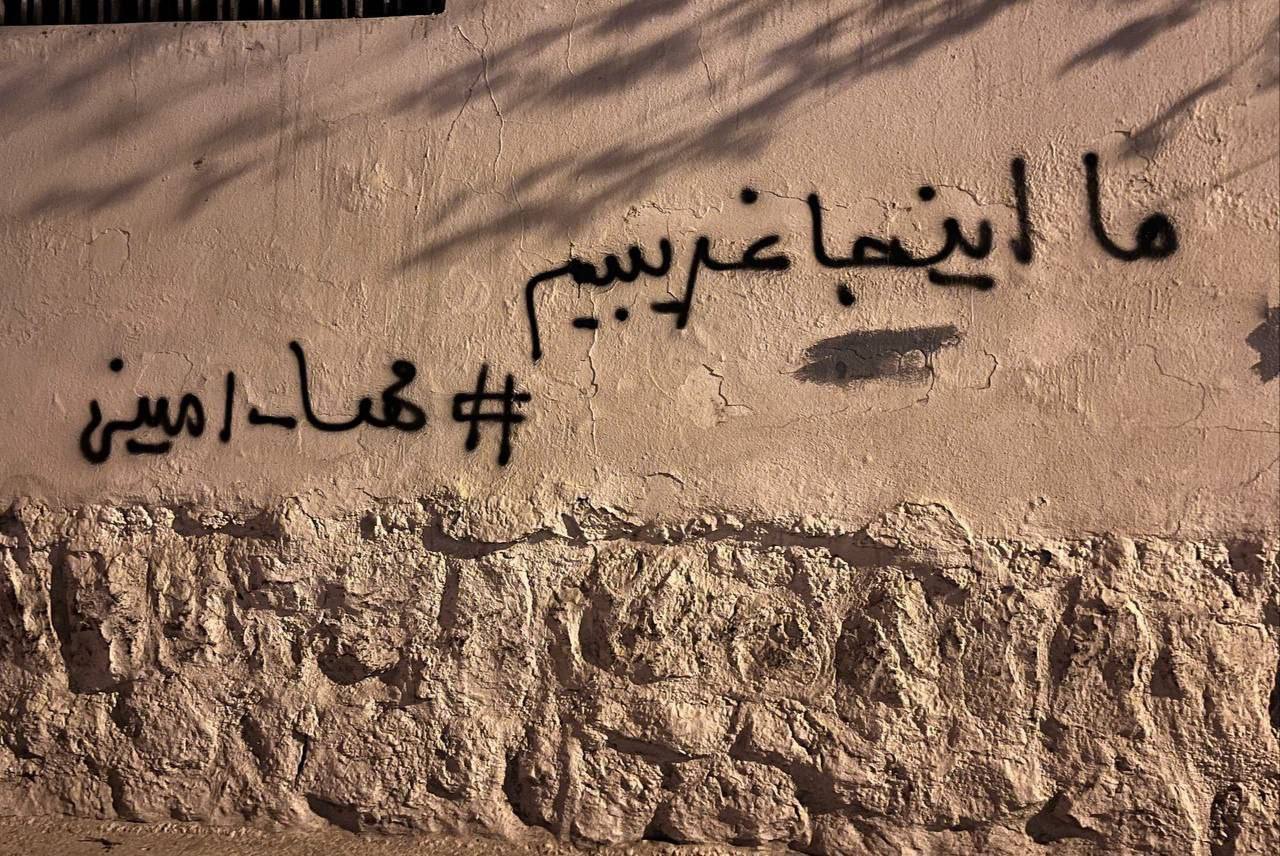 ما اینجا غریبیم
#مهسا_امینی